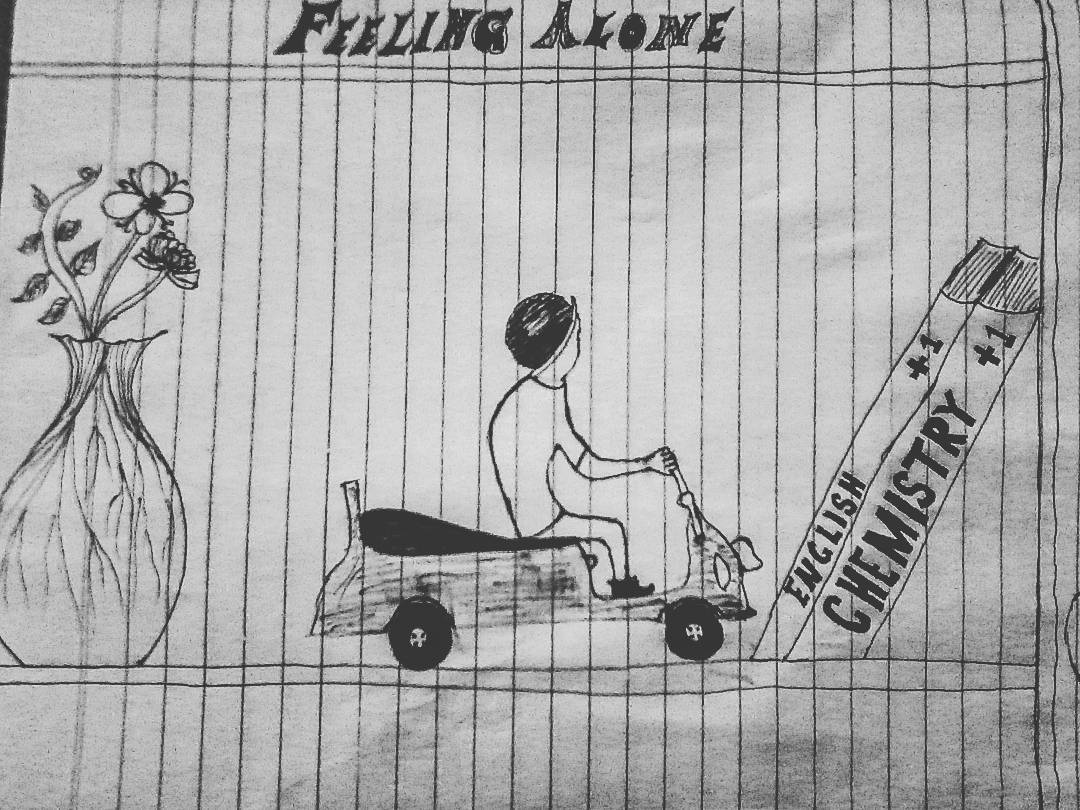 FEELING ALONE
ENGLISH +1
CHEMISTRY +1